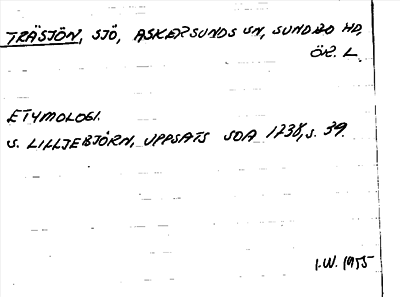 TRÄSJÖN, SJÖ, ASKERSUNDS SN, SUNDBO HD,
ÖR. L.
ETYMOLOGI.
S. LILLJEBJÖRN, UPPSATS SOA 1738, S. 39.
I.W. 1955